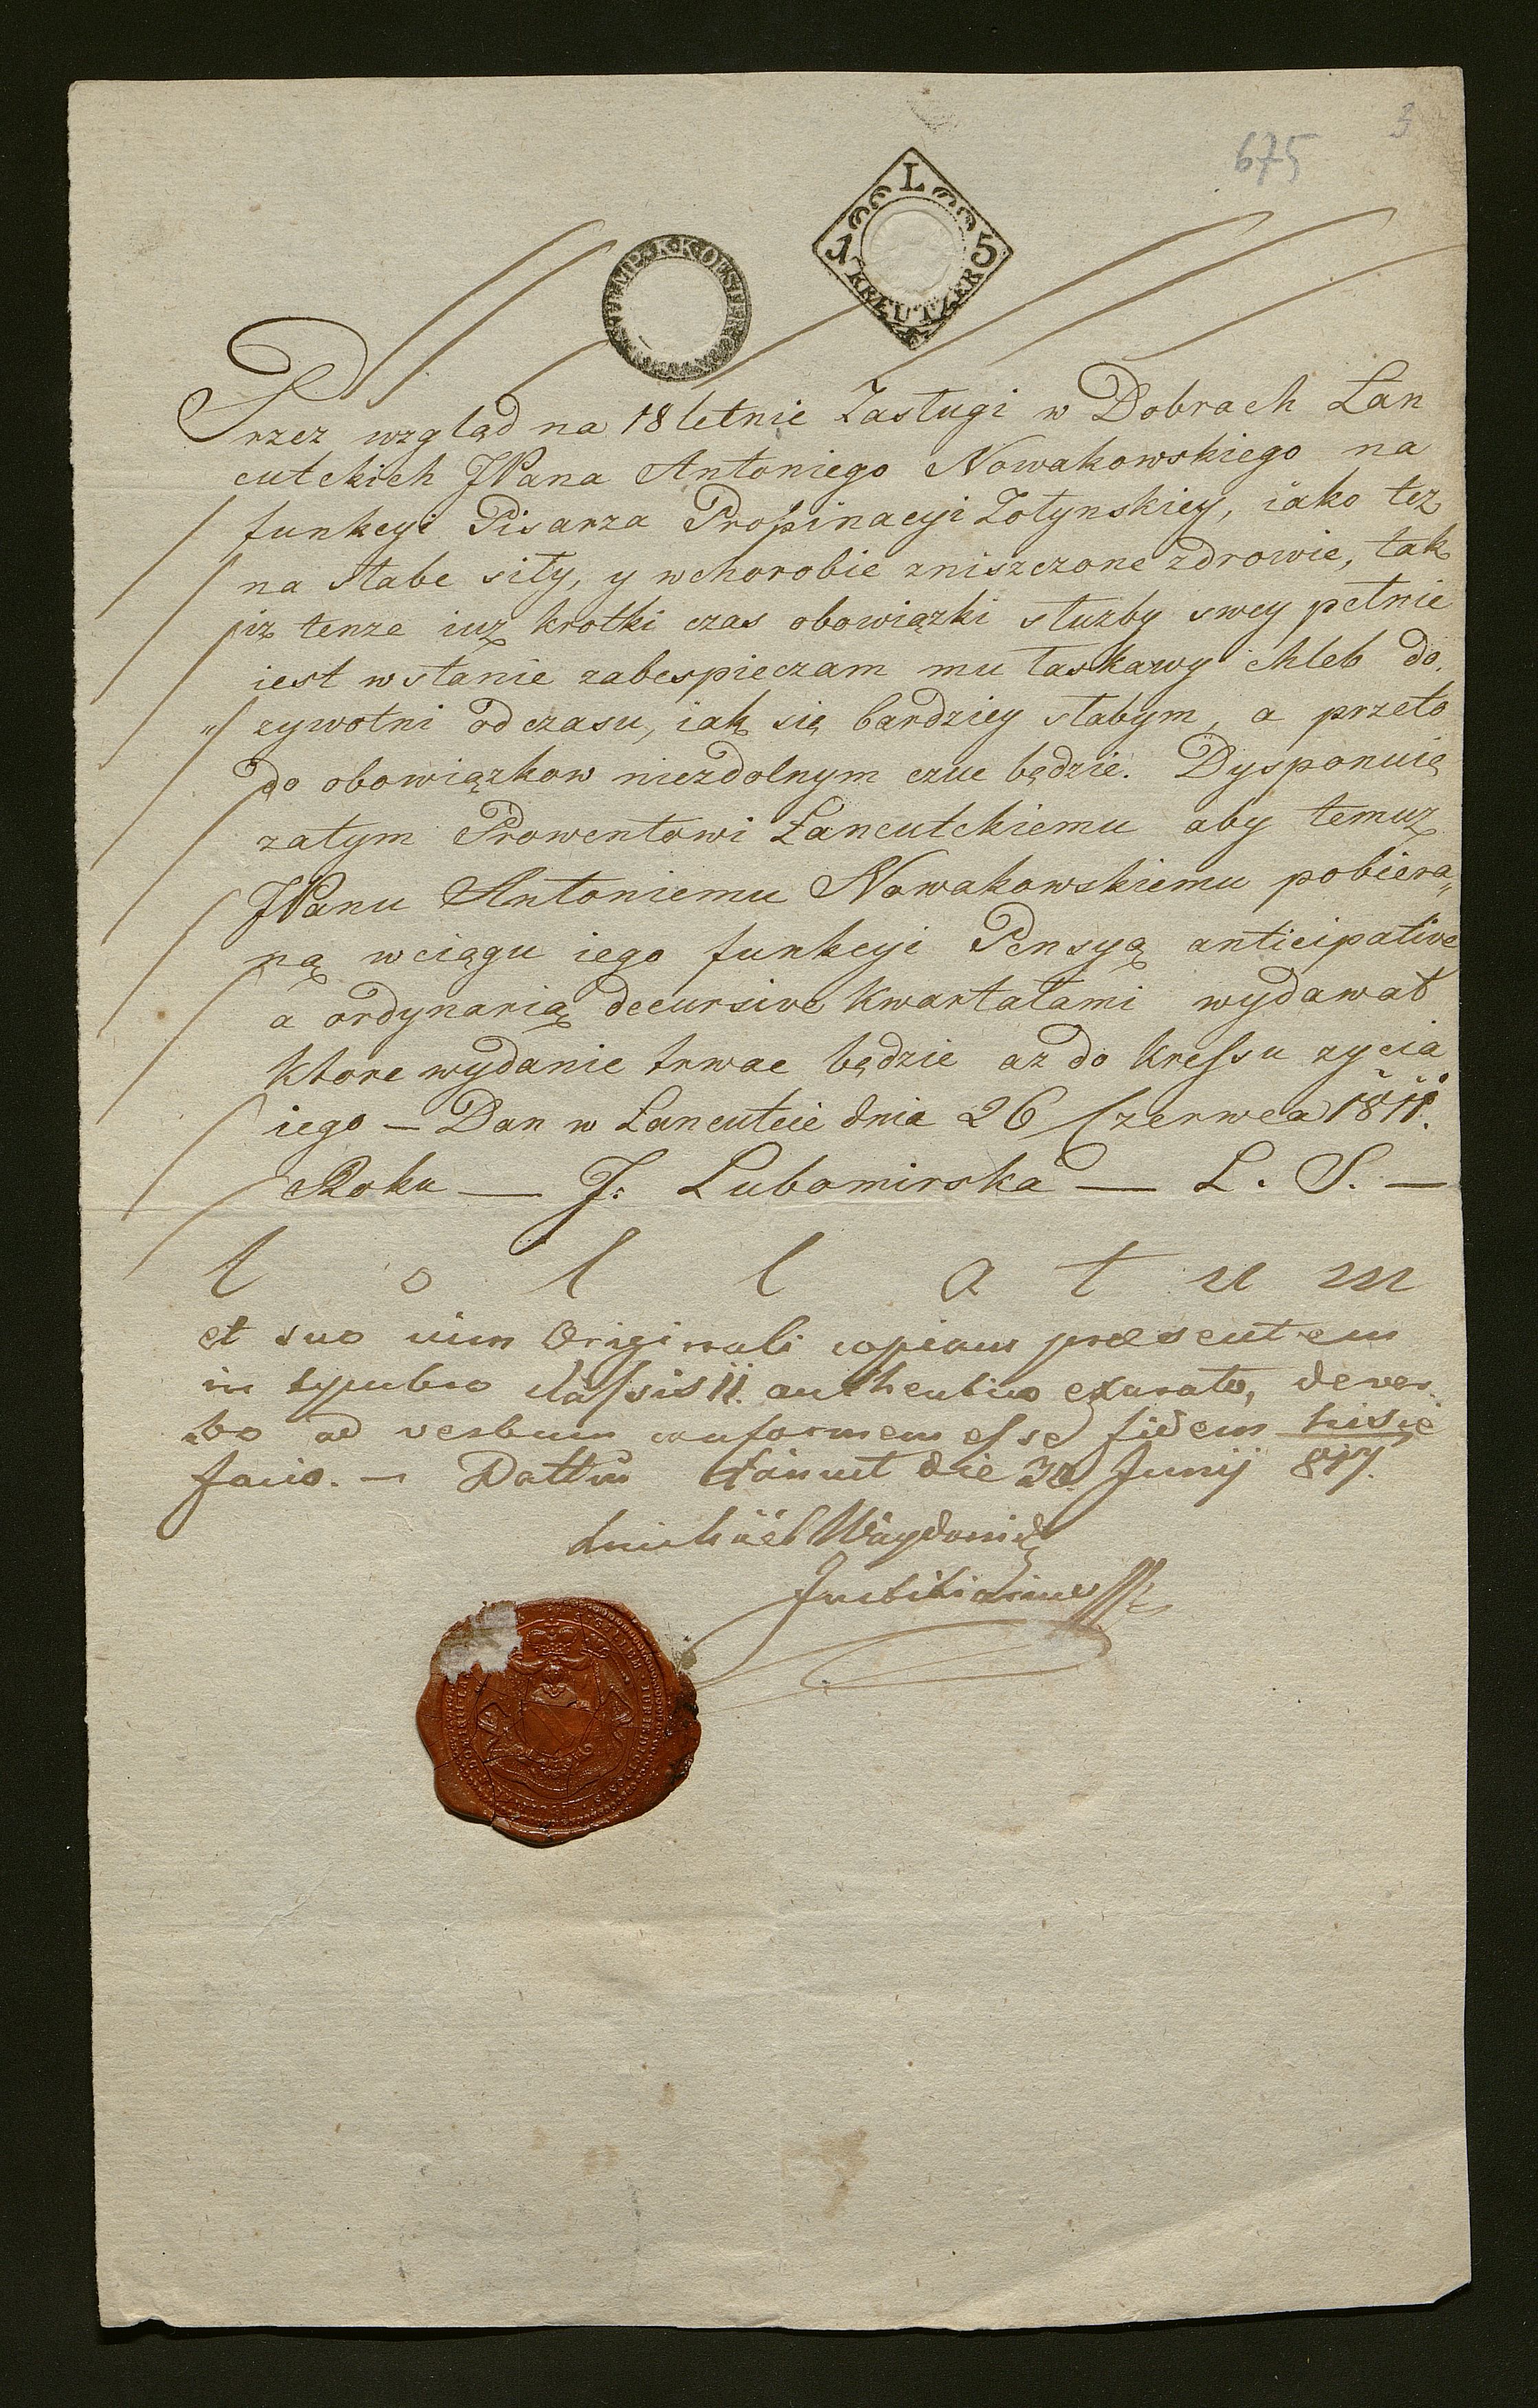 675
3
L
15
KREUTZER
STEMP. K. K. OESTER
Przez wzgląd na 18 letnie Zasługi w Dobrach Lan
cutckich JPana Antoniego Nowakowskiego na
funkcyi Pisarza Propinacyi Zołynskiey, iako tez
na słabe siły, y w chorobie zniszczone zdrowie, tak
iz tenze iuz krotki czas obowiązki służby swey pełnie
iest w stanie zabespieczam mu łaskawy chleb do.
zywotni od czasu, iak się bardziey słabym, a przeto
do obowiązkow niezdolnym czuc będzie. Dysponuię
zatym Prowentowi Łancutckiemu aby temuz
JPanu Antoniemu Nowakowskiemu pobiera„
ną w ciągu iego funkcyi Pensyą anticipative
a ordynarią decursive Kwartałami wydawał
ktore wydanie trwac będzie az do Kressu zycia
iego — Dan w Łancutcie dnia 26 Czerwca 1811.
Roku — J: Lubomirska — L. S. —
Collatum
et suo cum Originali copiam præsentem
in symbro classis II. authentico exarato, de ver„
bo ad verbum conformem esse fidem hisce
facio. — Dattum Łancut die 30 Junij 817.
Michael
Justitiarius